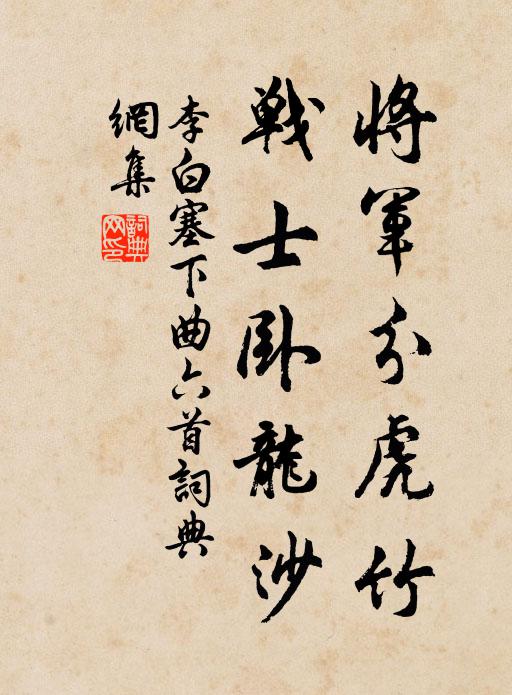 將軍分虎竹
戰士卧龍沙
李白塞下曲六首詞典
網集
詞典
网印